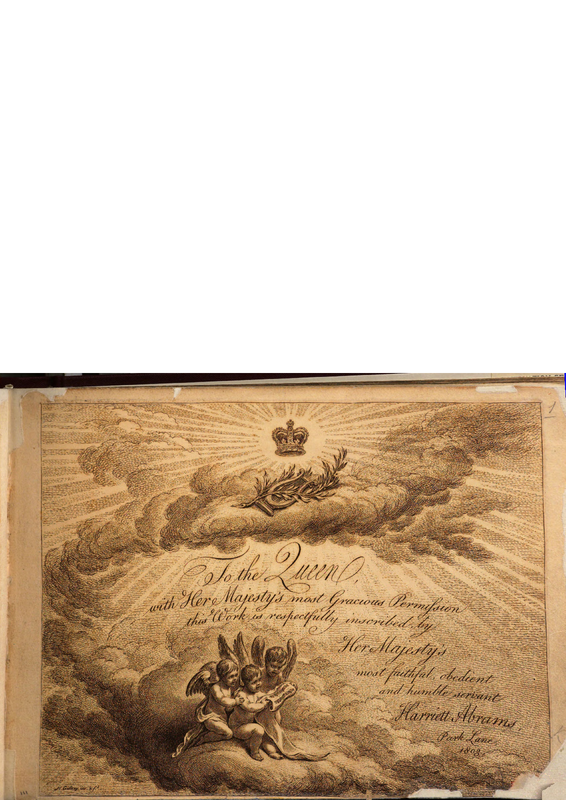 1
To the Queen,
with Her Majesty's most Gracious Permission
this Work is respectfully inscribed by
Her Majesty's
most faithful, obedient
and humble servant
Harriett Abrams,
Park Lane
1803